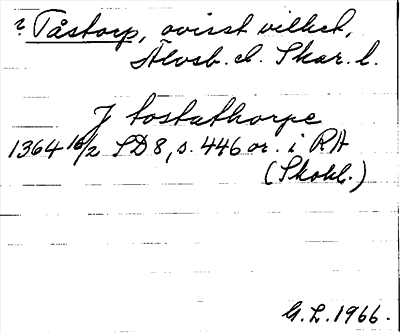 ? Tåstorp, ovisst vilket,
Älvsb. el. Skar. l.
J tostathorpe
1364 16/2 SD 8, s. 446 or. i RA
(Skokl.)
G.L. 1966.